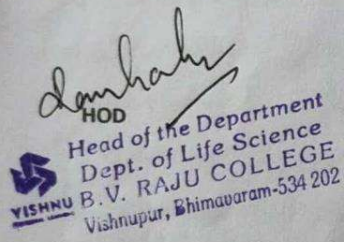 HOD
Head of the Department
Dept. of Life Science
B.V. RAJU COLLEGE
VISHNU
Vishnupur, Bhimavaram-534 202